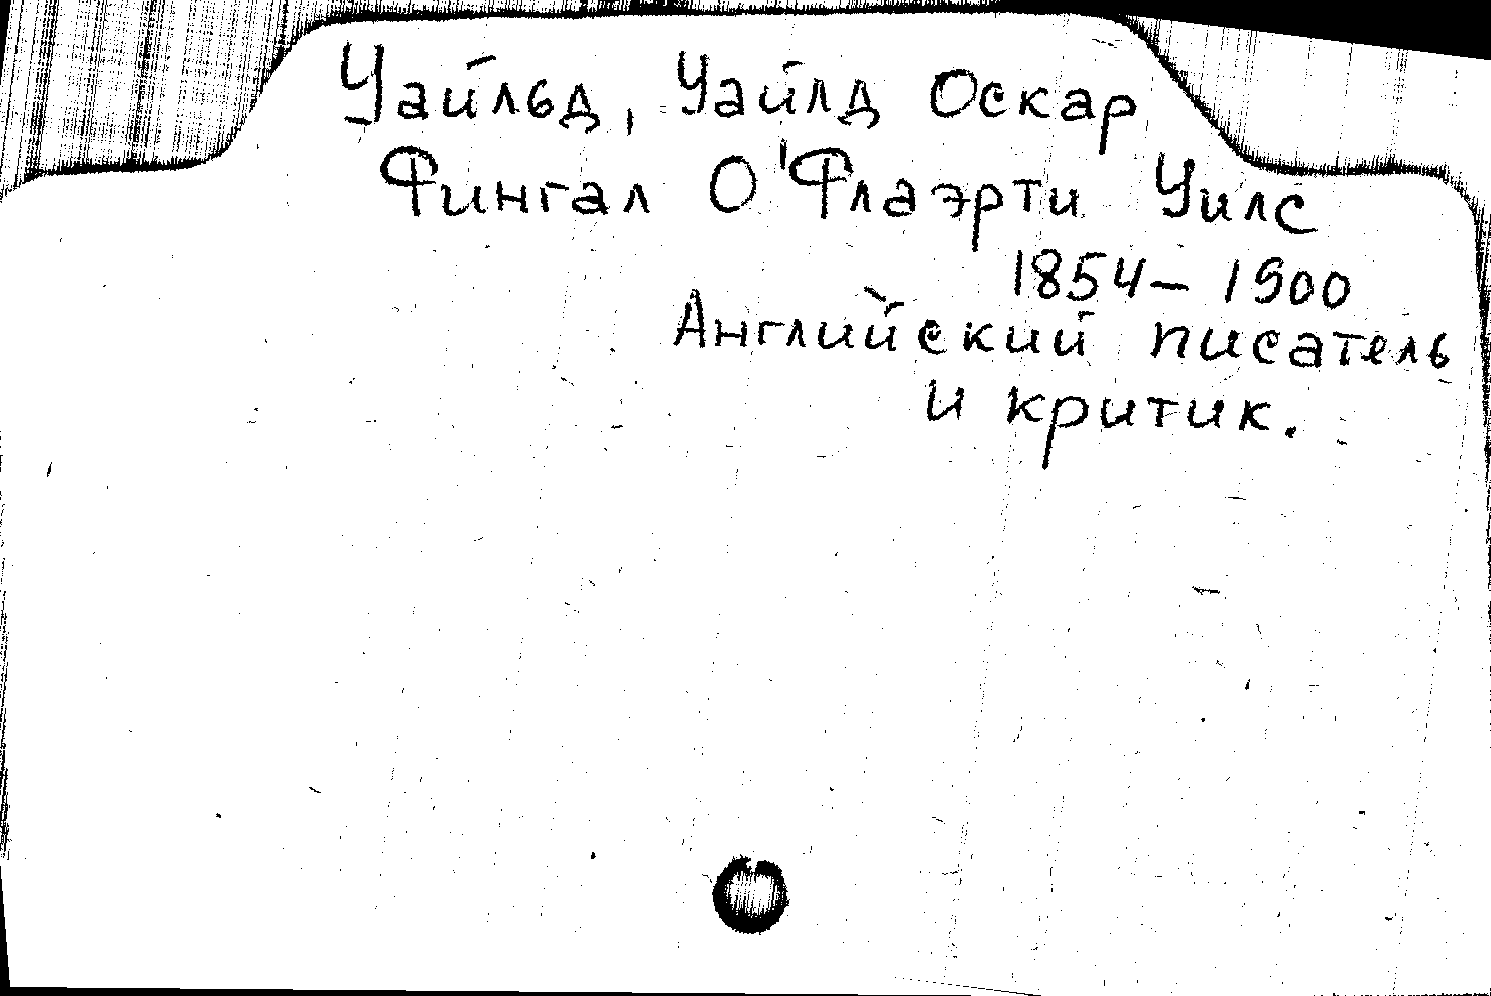 Уайльд, Уайлд Оскар
Фингал О'Флаэрти Уилс
1854 – 1900
Английский писатель
и критик.